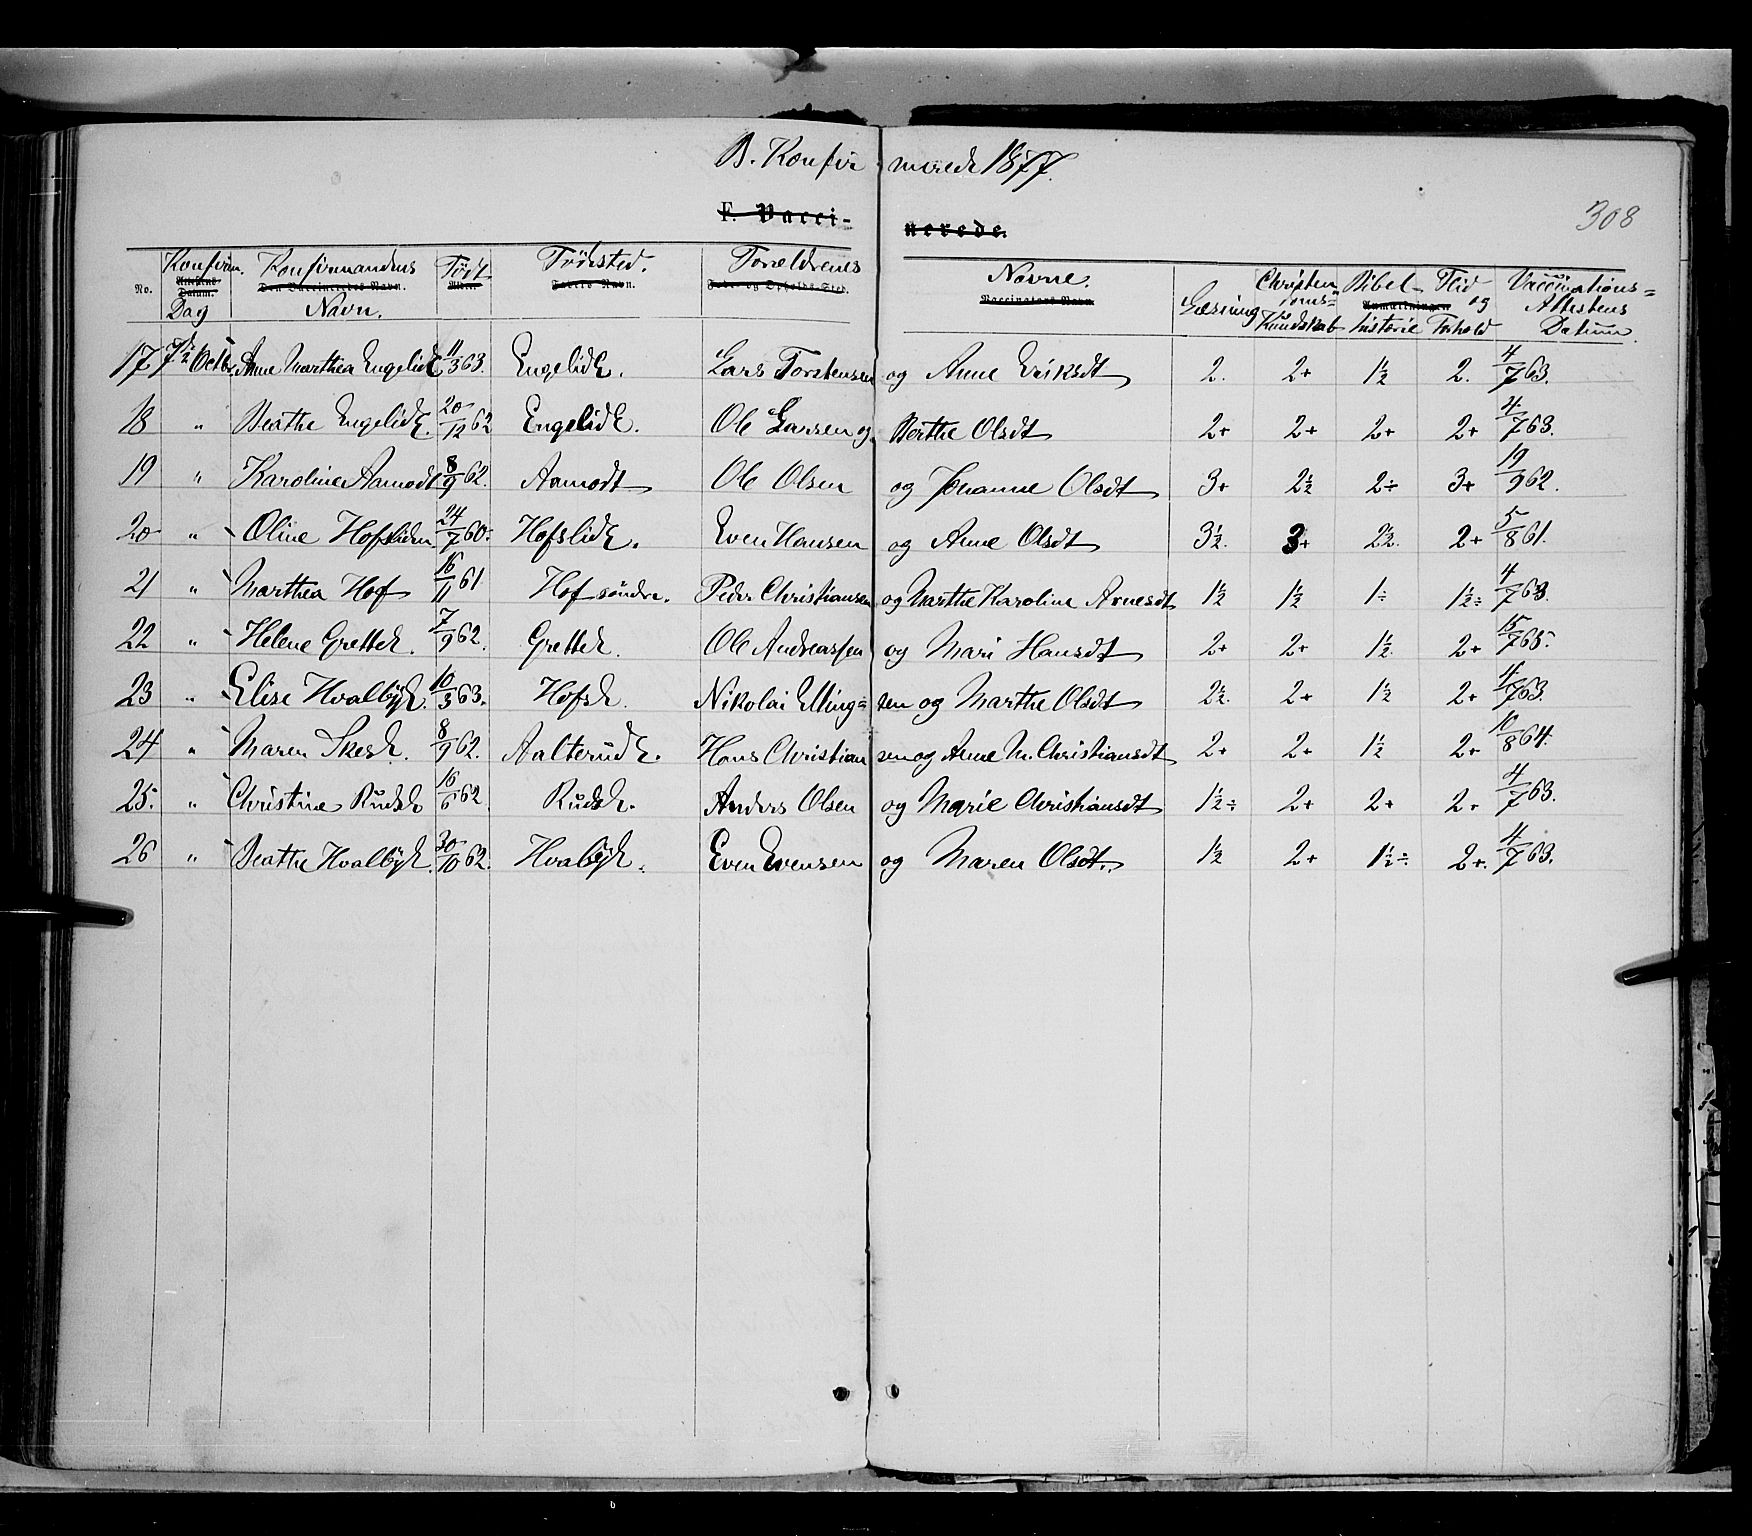 B. Konfirmerede 1877.
308
F. Vaccinerede.
No. | Konfirm. Attestens Datum. Dag | Konfirmandens Den Vaccineredes Navn. Navn. | Født Alder | Fødested. Faders Navn. | Forældrenes Føde- og Opholds-Sted. | Navne. Vaccinators Navn. | Læsning | Christendoms=Kundskab | Bibelhistorie Anmærkninger | Flid og Forhold | Vaccinations=Attestens Datum.
17 | 7de Octbr. | Anne Marthea EngelidE | 11/3 63. | EngelidE. | Lars Torstensen og Anne Eriksdt | 2. | 2+ | 1½ | 2. | 4/7 63.
18 | " | Beathe EngelidE. | 20/12 62 | EngelidE. | Ole Larsen og Berthe Olsdt | 2+ | 2+ | 2+ | 2+ | 4/7 63.
19 | " | Karoline Aamodt | 8/9 62. | Aamodt | Ole Olsen og Johanne Olsdt | 3+ | 2½ | 2÷ | 3+ | 19/9 62.
20 | " | Oline Hofsliden | 24/7 60. | HofslidE. | Even Hansen og Anne Olsdt | 3½. | 3+ | 2½. | 2+ | 5/8 61.
21 | " | Marthea Hof | 16/11 61 | Hof søndre. | Peder Christiansen og Marthe Karoline Arnesdt | 1½ | 1½ | 1÷ | 1½÷ | 4/7 63.
22 | " | Helene GretteE. | 7/9 62. | GretteE. | Ole Andreassen og Mari Hansdt | 2+ | 2+ | 1½. | 2+ | 15/7 65.
23 | " | Elise HvalbyE. | 10/3 63. | HofsE. | Nikolai Elling=sen og Marthe Olsdt | 2½. | 2+ | 1½ | 2+ | 4/7 63.
24 | " | Maren SkesE. | 8/9 62. | AalterudE. | Hans Christiansen og Anne M. Christiansdt | 2+ | 2+ | 1½ | 2+ | 10/8 64.
25. | " | Christine RudsE | 16/6 62. | RudsE. | Anders Olsen og Marie Christiansdt | 1½÷ | 2+ | 2+ | 2+ | 4/7 63.
26 | " | Beathe HvalbyE. | 30/10 62. | HvalbyE. | Even Evensen og Maren Olsdt. | 1½ | 2+ | 1½÷ | 2+. | 4/7 63.